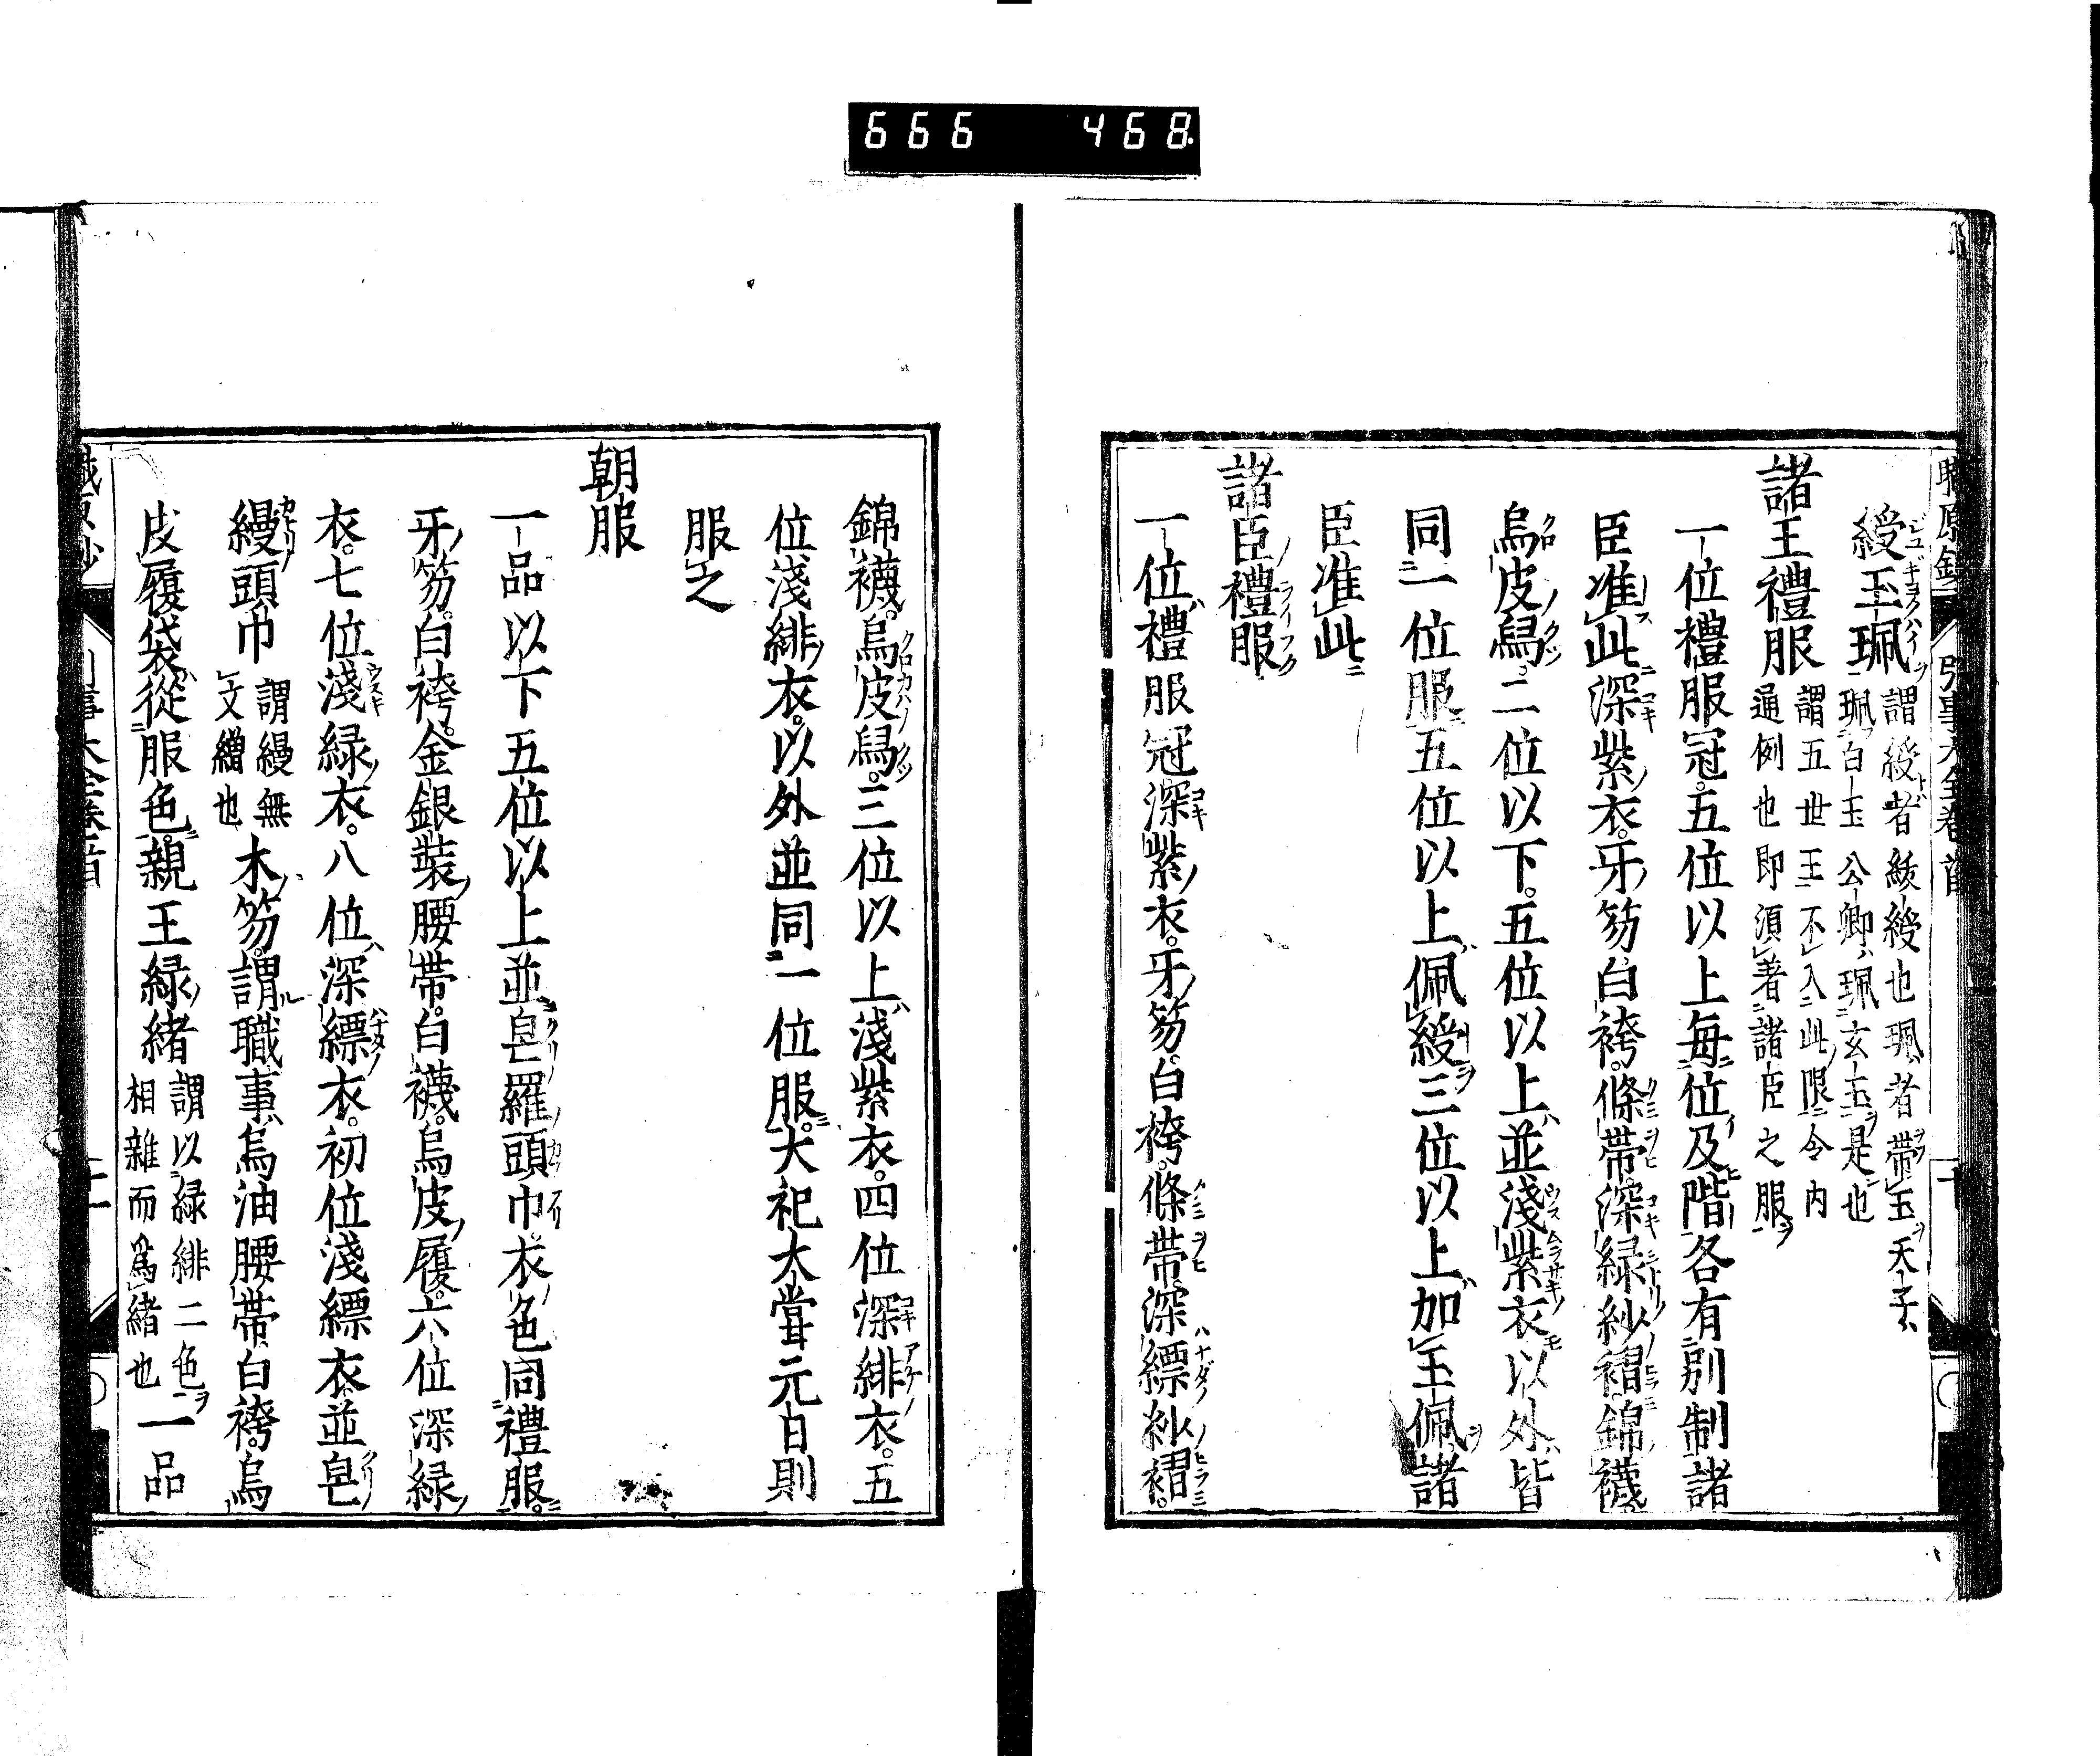 666 468
綬玉珮謂綬者紱綬也珮者帶玉天子
珮白玉公卿珮玄玉是也
諸王禮服謂五世王不入此限令內
通例也即須著諸臣之服
一位禮服冠五位以上每位及階各有別制諸
臣准此深紫衣牙笏白袴條帶深緑紗褶錦襪
烏皮舄二位以下五位以上並淺紫衣以外皆
同一位服五位以上佩綬三位以上加玉佩諸
臣准此
諸臣禮服
一位禮服冠深紫衣牙笏白袴條帶深縹紗褶
錦襪烏皮舄三位以上淺紫衣四位深緋衣五
位淺緋衣以外並同一位服大祀大甞元日則
服之
朝服
一品以下五位以上並皀羅頭巾衣色同禮服
牙笏白袴金銀裝腰帶白襪烏皮履六位深緑
衣七位淺緑衣八位深縹衣初位淺縹衣並皀
縵頭巾謂縵無
文繒也木笏謂職事烏油腰帶白袴烏
皮履袋從服色親王緑緒謂以緑緋二色
相雜而爲緒也一品